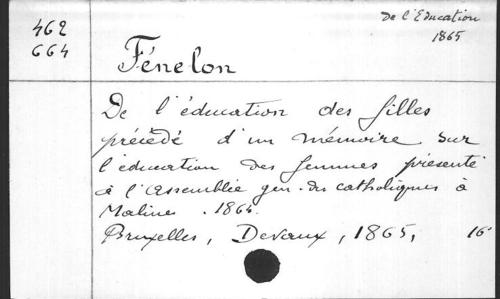 462
664
De l'Education
1865
Fénelon
De l'éducation des filles
précédé d'un mémoire sur
l'éducation des femmes présenté
à l'Assemblée gén. des catholiques à
Malines. 1864.
Bruxelles, Devaux, 1865, 16°